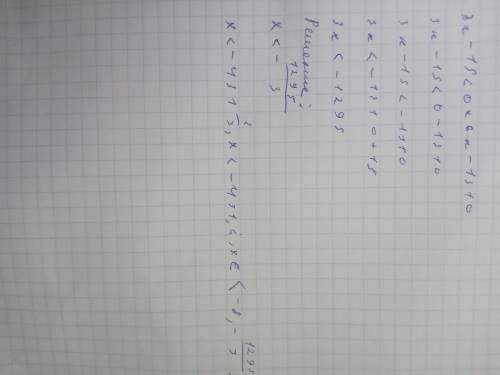 3x - 15 < 0 × 6x - 1310
3x - 15 < 0 - 1310
3x - 15 < -1310
3x < -1310 + 15
3x < -1295
Решение:
x < - 1295/3
x < -431 2/3, x < -431, x ∈ < -8, - 1295